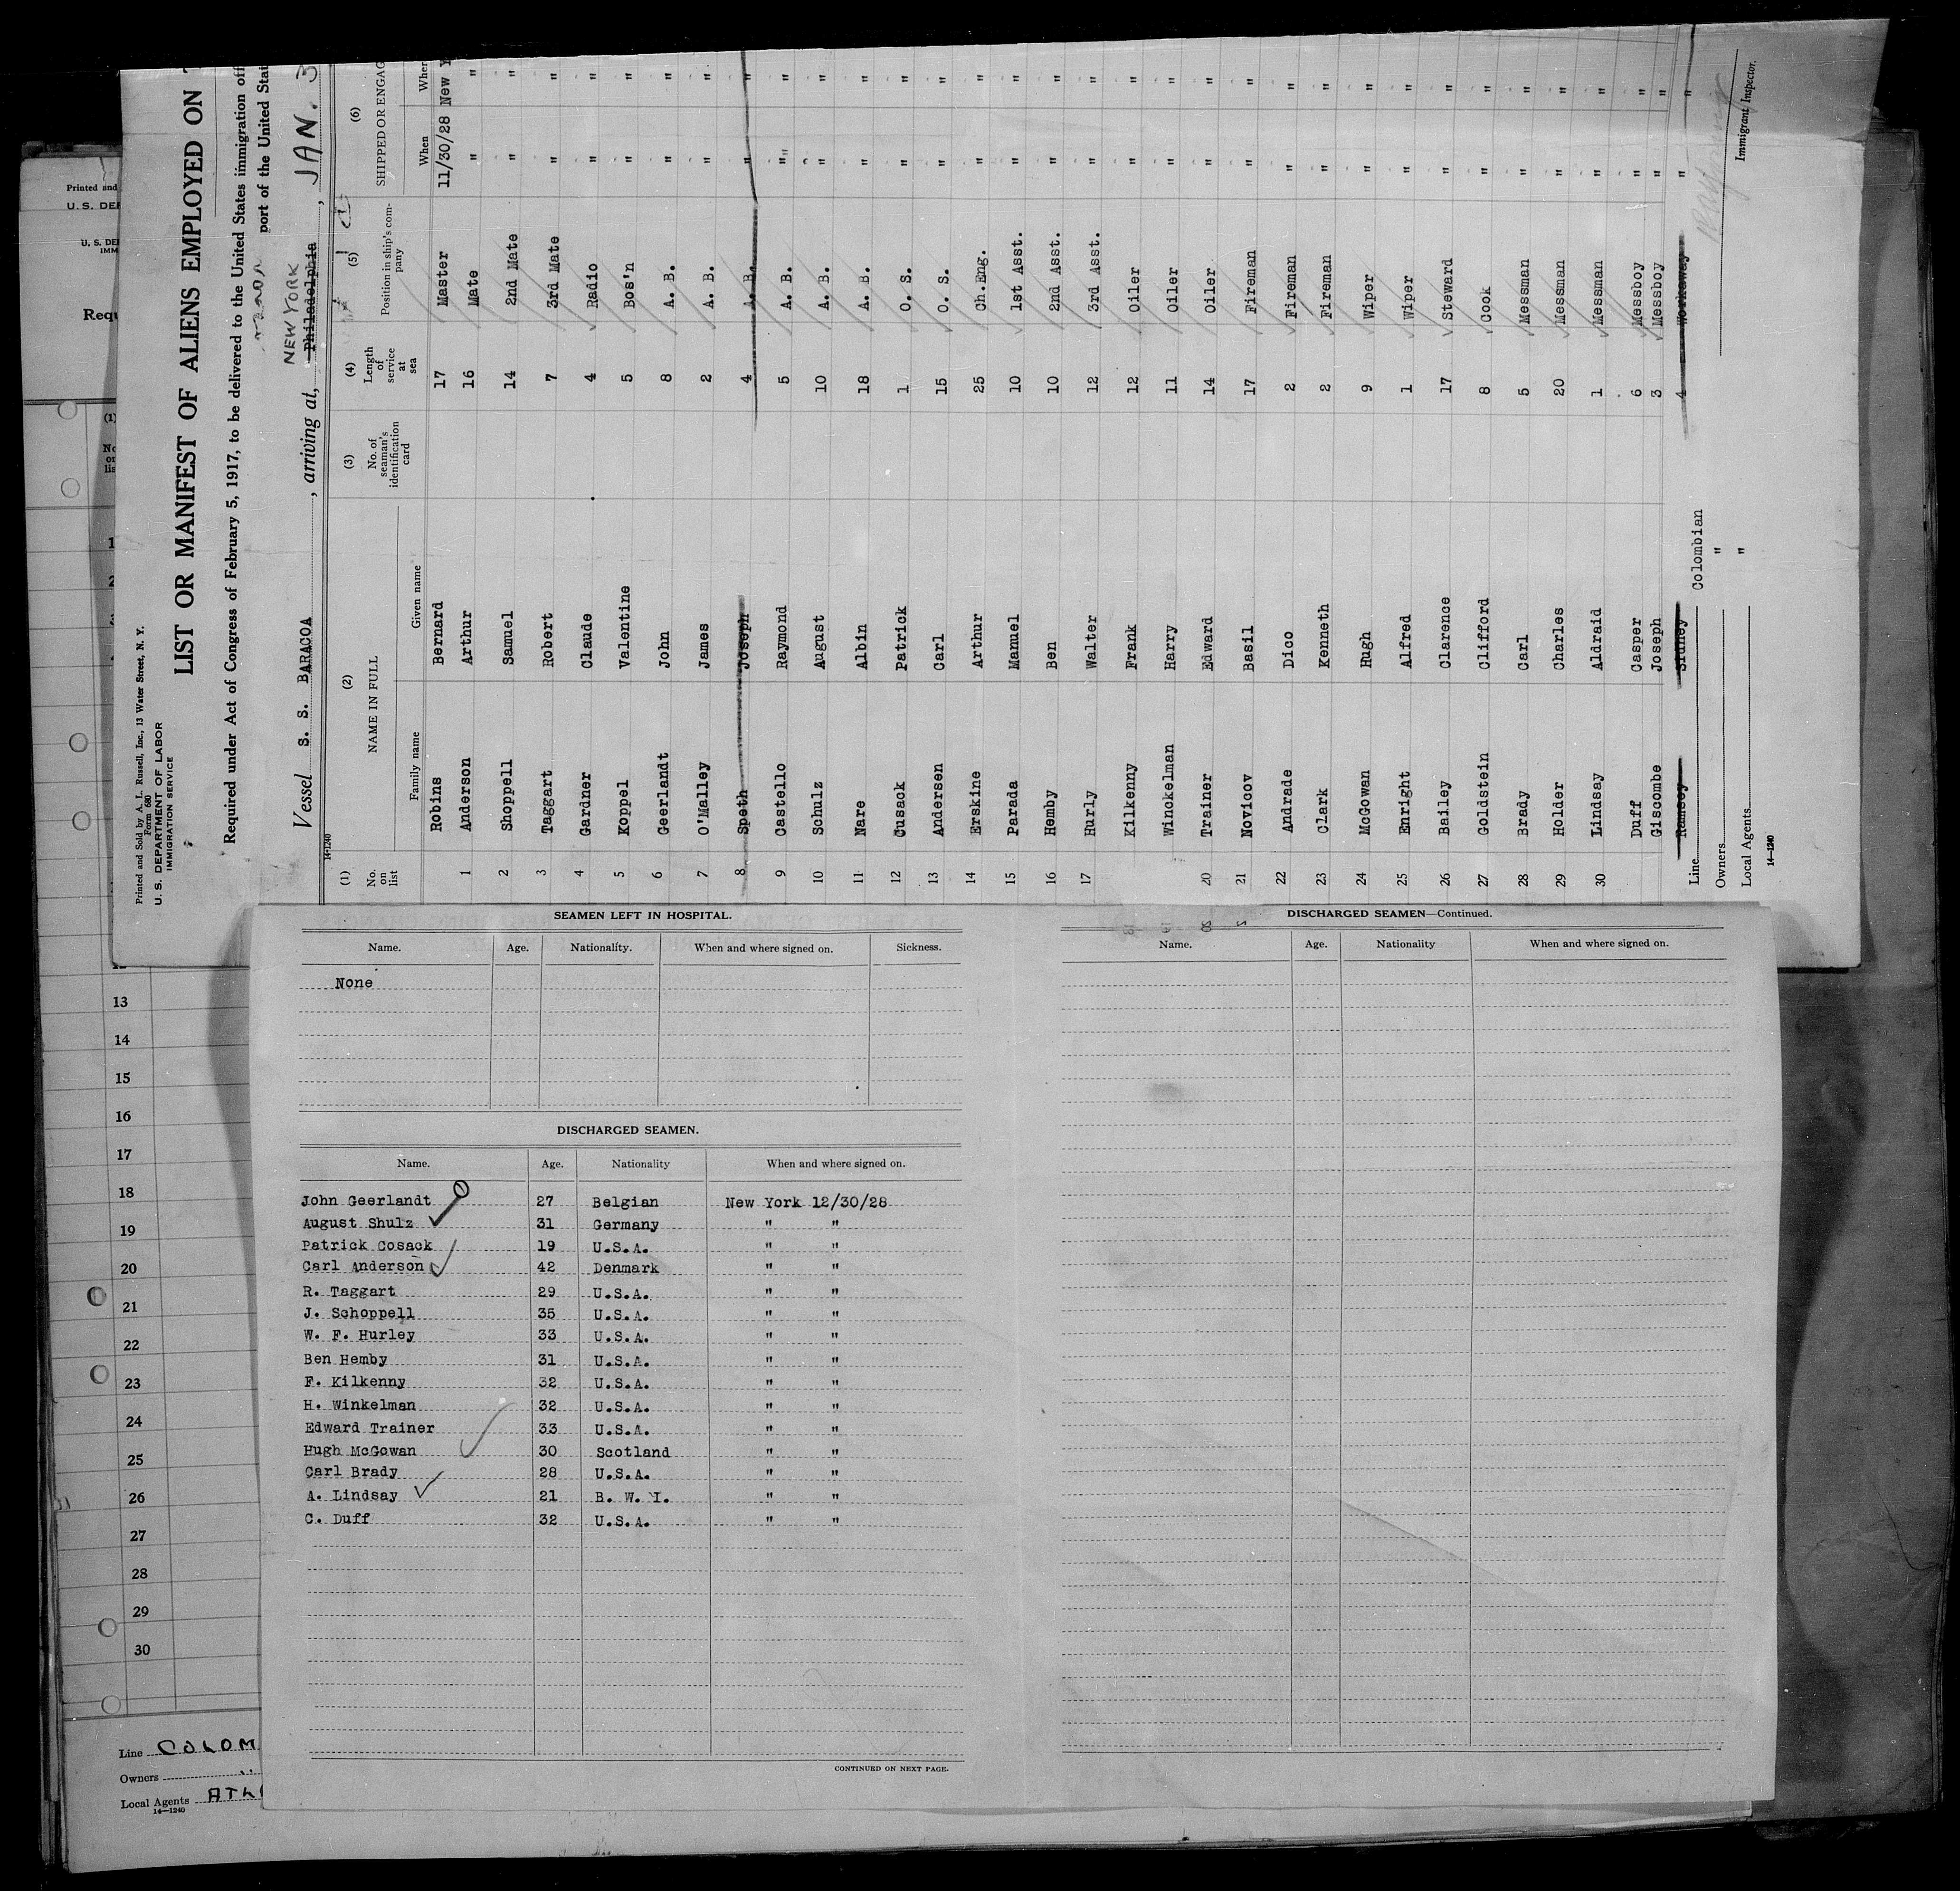 Printed and Sold by A. L. Russell, Inc., 13 Water Street, N. Y.
Form 680
U. S. DEPARTMENT OF LABOR
IMMIGRATION SERVICE
LIST OR MANIFEST OF ALIENS EMPLOYED ON
Required under Act of Congress of February 5, 1917, to be delivered to the United States immigration
port of the United
NEW YORK
Vessel S. S. BARACOA, arriving at, Philadelphia, JAN. 3
14-1240
(1) (2) (3) (4) (5) (6)
No. on list NAME IN FULL No. of seaman's identification card Length of service at sea Position in ship's company SHIPPED OR
Family name Given name When
Robins Bernard 17 Master 11/30/28 New
1 Anderson Arthur 16 Mate " "
2 Shoppell Samuel 14 2nd Mate " "
3 Taggart Robert 7 3rd Mate " "
4 Gardner Claude 4 Radio " "
5 Koppel Valentine 5 Bos'n " "
6 Geerlandt John 8 A. B. " "
7 O'Malley James 2 A. B. " "
8 Speth Joseph 4 A. B. " "
9 Castello Raymond 5 A. B. " "
10 Schulz August 10 A. B. " "
11 Nare Albin 18 A. B. " "
12 Cusack Patrick 1 O. S. " "
13 Andersen Carl 15 O. S. " "
14 Erskine Arthur 25 Ch.Eng. " "
15 Parada Manuel 10 1st Asst. " "
16 Hemby Ben 10 2nd Asst. " "
17 Hurly Walter 12 3rd Asst. " "
Kilkenny Frank 12 Oiler " "
Winckelman Harry 11 Oiler " "
20 Trainer Edward 14 Oiler " "
21 Novicov Basil 17 Fireman " "
22 Andrade Dico 2 Fireman " "
23 Clark Kenneth 2 Fireman " "
24 McGowan Hugh 9 Wiper " "
25 Enright Alfred 1 Wiper " "
26 Bailey Clarence 17 Steward " "
27 Goldstein Clifford 8 Cook " "
28 Brady Carl 5 Messman " "
29 Holder Charles 20 Messman " "
30 Lindsay Aldraid 1 Messman " "
Duff Casper 6 Messboy " "
Giscombe Joseph 3 Messboy " "
Ramsey Sidney 4 Workaway " "
Line Colombian
Owners "
Local Agents "
14-1240
Immigrant Inspector.
Printed and
(1)
1
2
13
14
15
16
17
18
19
20
21
22
23
24
25
26
27
28
29
30
Line COLOM
Owners "
Local Agents
14-1240
SEAMEN LEFT IN HOSPITAL.
Name. Age. Nationality. When and where signed on. Sickness.
None
DISCHARGED SEAMEN.
Name. Age. Nationality When and where signed on.
John Geerlandt 27 Belgian New York 12/30/28
August Shulz 31 Germany " "
Patrick Cosack 19 U.S.A. " "
Carl Anderson 42 Denmark " "
R. Taggart 29 U.S.A. " "
J. Schoppell 35 U.S.A. " "
W. F. Hurley 33 U.S.A. " "
Ben Hemby 31 U.S.A. " "
F. Kilkenny 32 U.S.A. " "
H. Winkelman 32 U.S.A. " "
Edward Trainer 33 U.S.A. " "
Hugh McGowan 30 Scotland " "
Carl Brady 28 U.S.A. " "
A. Lindsay 21 B. W. I. " "
C. Duff 32 U.S.A. " "
CONTINUED ON NEXT PAGE.
DISCHARGED SEAMEN—Continued.
Name. Age. Nationality When and where signed on.